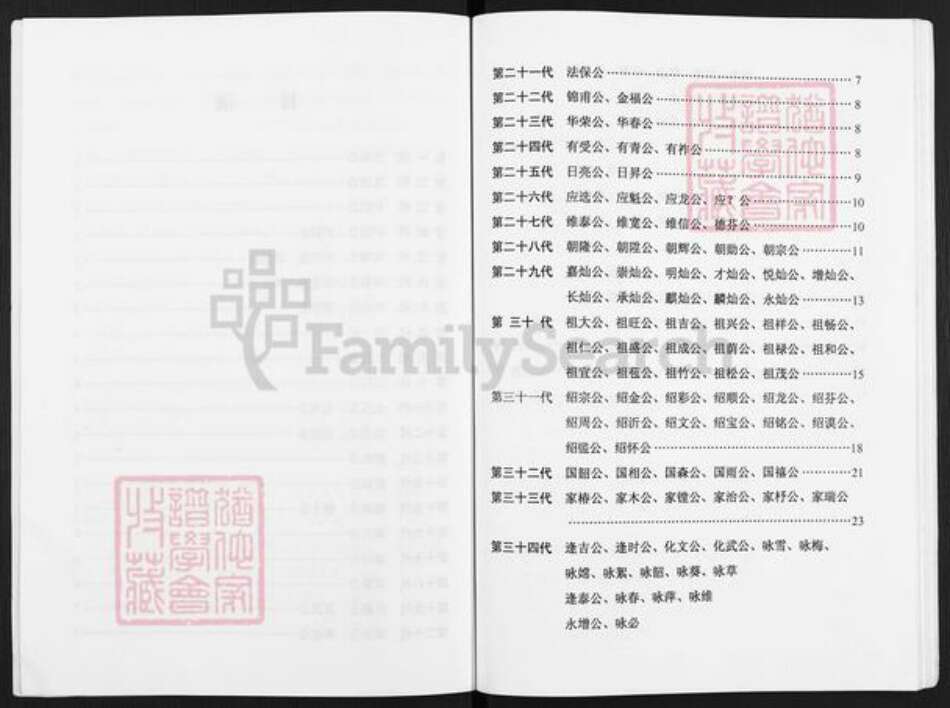 第二十一代 法保公……7
第二十二代 锦甫公、金福公……8
第二十三代 华荣公、华春公……8
第二十四代 有受公、有青公、有祚公……8
第二十五代 日亮公、日昇公……9
第二十六代 应选公、应魁公、应龙公、应？公……10
第二十七代 维泰公、维宽公、维信公、德芬公……10
第二十八代 朝隆公、朝陞公、朝辉公、朝勋公、朝宗公……11
第二十九代 嘉灿公、崇灿公、明灿公、才灿公、悦灿公、增灿公、
长灿公、承灿公、麒灿公、麟灿公、永灿公……13
第三十代 祖大公、祖旺公、祖吉公、祖兴公、祖祥公、祖畅公、
祖仁公、祖盛公、祖成公、祖荫公、祖禄公、祖和公、
祖宜公、祖苞公、祖竹公、祖松公、祖茂公……15
第三十一代 绍宗公、绍金公、绍彩公、绍顺公、绍龙公、绍芬公、
绍周公、绍沂公、绍文公、绍宝公、绍铭公、绍谟公、
绍谥公、绍怀公……18
第三十二代 国韶公、国相公、国森公、国雨公、国禧公……21
第三十三代 家椿公、家木公、家镗公、家治公、家杼公、家瑞公
……23
第三十四代 逢吉公、逢时公、化文公、化武公、咏雪、咏梅、
咏嫦、咏絮、咏韶、咏葵、咏草
逢泰公、咏春、咏萍、咏维
永增公、咏必
FamilySearch
猶他家
譜學會
收藏
猶他家
譜學會
收藏